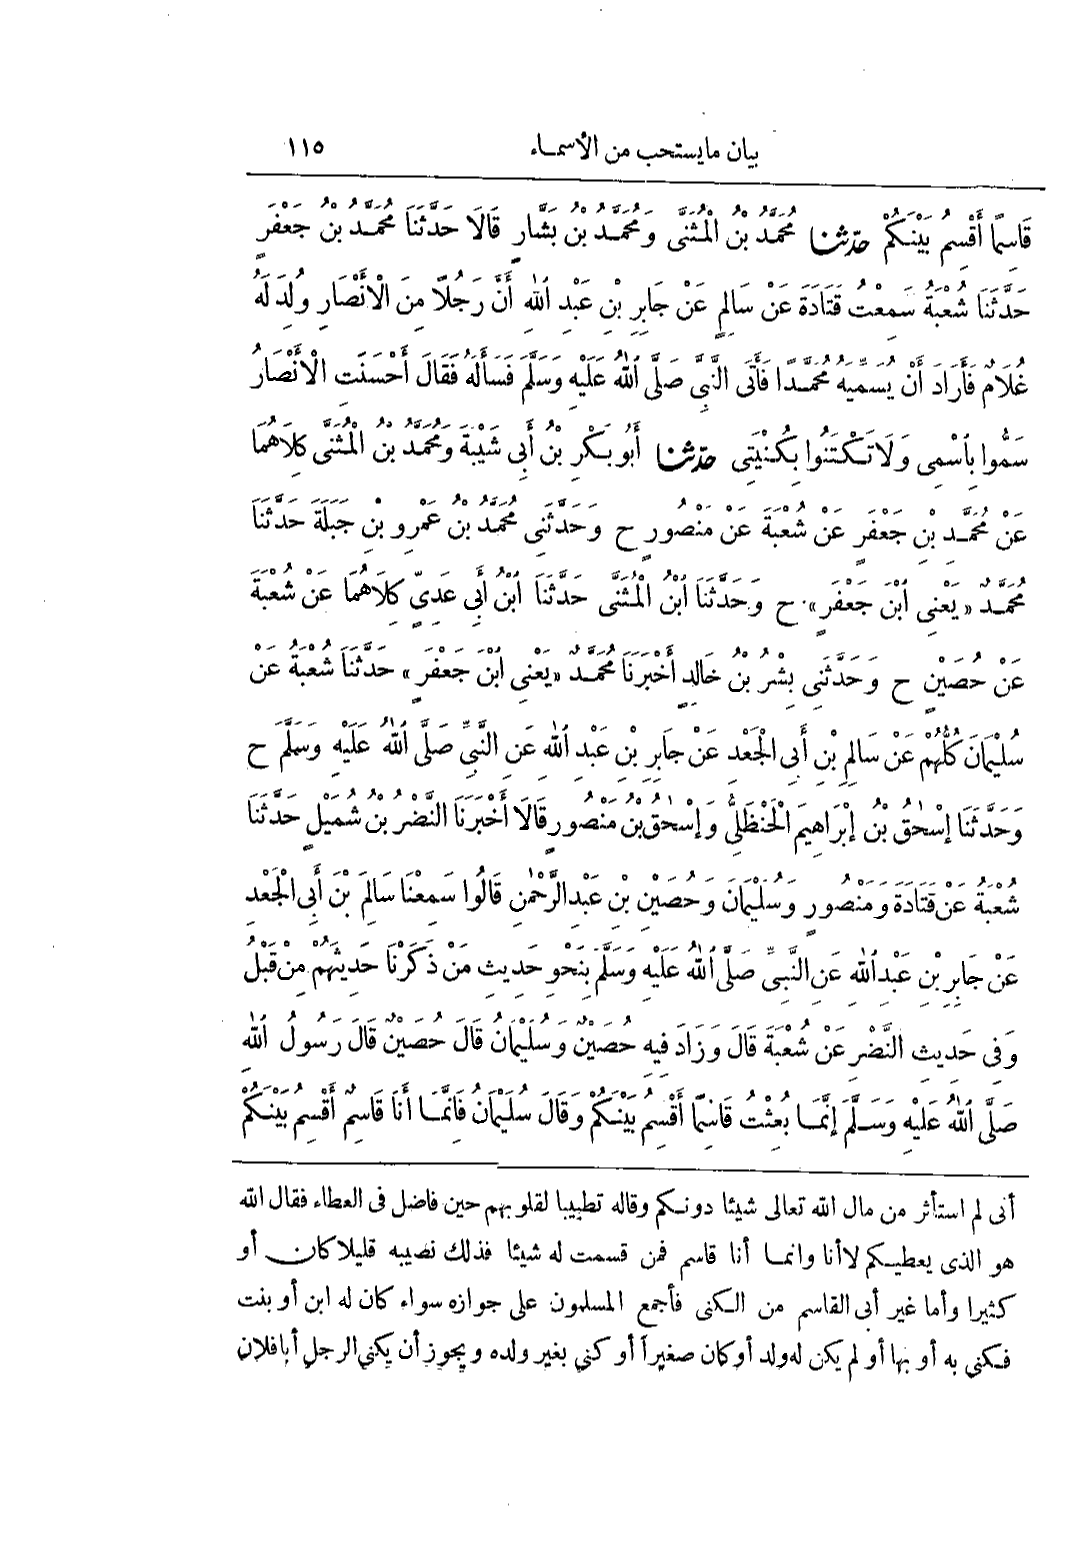 بيان ما يستحب من الأسماء ١١٥
قَاسِمًا أَقْسِمُ بَيْنَكُمْ حَدَّثَنَا مُحَمَّدُ بْنُ الْمُثَنَّى وَمُحَمَّدُ بْنُ بَشَّارٍ قَالَا حَدَّثَنَا مُحَمَّدُ بْنُ جَعْفَرٍ
حَدَّثَنَا شُعْبَةُ سَمِعْتُ قَتَادَةَ عَنْ سَالِمٍ عَنْ جَابِرِ بْنِ عَبْدِ اللهِ أَنَّ رَجُلًا مِنَ الْأَنْصَارِ وُلِدَ لَهُ
غُلَامٌ فَأَرَادَ أَنْ يُسَمِّيَهُ مُحَمَّدًا فَأَتَى النَّبِيَّ صَلَّى اللهُ عَلَيْهِ وَسَلَّمَ فَسَأَلَهُ فَقَالَ أَحْسَنَتِ الْأَنْصَارُ
سَمُّوا بِاسْمِي وَلَا تَكْتَنُوا بِكُنْيَتِي حَدَّثَنَا أَبُو بَكْرِ بْنُ أَبِي شَيْبَةَ وَمُحَمَّدُ بْنُ الْمُثَنَّى كِلَاهُمَا
عَنْ مُحَمَّدِ بْنِ جَعْفَرٍ عَنْ شُعْبَةَ عَنْ مَنْصُورٍ ح وَحَدَّثَنِي مُحَمَّدُ بْنُ عَمْرِو بْنِ جَبَلَةَ حَدَّثَنَا
مُحَمَّدٌ «يَعْنِي ابْنَ جَعْفَرٍ» ح وَحَدَّثَنَا ابْنُ الْمُثَنَّى حَدَّثَنَا ابْنُ أَبِي عَدِيٍّ كِلَاهُمَا عَنْ شُعْبَةَ
عَنْ حُصَيْنٍ ح وَحَدَّثَنِي بِشْرُ بْنُ خَالِدٍ أَخْبَرَنَا مُحَمَّدٌ «يَعْنِي ابْنَ جَعْفَرٍ» حَدَّثَنَا شُعْبَةُ عَنْ
سُلَيْمَانَ كُلُّهُمْ عَنْ سَالِمِ بْنِ أَبِي الْجَعْدِ عَنْ جَابِرِ بْنِ عَبْدِ اللهِ عَنِ النَّبِيِّ صَلَّى اللهُ عَلَيْهِ وَسَلَّمَ ح
وَحَدَّثَنَا إِسْحَقُ بْنُ إِبْرَاهِيمَ الْحَنْظَلِيُّ وَإِسْحَقُ بْنُ مَنْصُورٍ قَالَا أَخْبَرَنَا النَّضْرُ بْنُ شُمَيْلٍ حَدَّثَنَا
شُعْبَةُ عَنْ قَتَادَةَ وَمَنْصُورٍ وَسُلَيْمَانَ وَحُصَيْنِ بْنِ عَبْدِ الرَّحْمَنِ قَالُوا سَمِعْنَا سَالِمَ بْنَ أَبِي الْجَعْدِ
عَنْ جَابِرِ بْنِ عَبْدِ اللهِ عَنِ النَّبِيِّ صَلَّى اللهُ عَلَيْهِ وَسَلَّمَ بِنَحْوِ حَدِيثِ مَنْ ذَكَرْنَا حَدِيثَهُمْ مِنْ قَبْلُ
وَفِي حَدِيثِ النَّضْرِ عَنْ شُعْبَةَ قَالَ وَزَادَ فِيهِ حُصَيْنٌ وَسُلَيْمَانُ قَالَ حُصَيْنٌ قَالَ رَسُولُ اللهِ
صَلَّى اللهُ عَلَيْهِ وَسَلَّمَ إِنَّمَا بُعِثْتُ قَاسِمًا أَقْسِمُ بَيْنَكُمْ وَقَالَ سُلَيْمَانُ فَإِنَّمَا أَنَا قَاسِمٌ أَقْسِمُ بَيْنَكُمْ
أنى لم استأثر من مال الله تعالى شيئا دونكم وقاله تطييبا لقلوبهم حين فاضل فى العطاء فقال الله
هو الذى يعطيكم لا أنا وانما أنا قاسم فمن قسمت له شيئا فذلك نصيبه قليلا كان أو
كثيرا وأما غير أبى القاسم من الكنى فأجمع المسلمون على جوازه سواء كان له ابن أو بنت
فكنى به أو بها أو لم يكن له ولد أو كان صغيراً أو كني بغير ولده ويجوز أن يكني الرجل أبا فلان